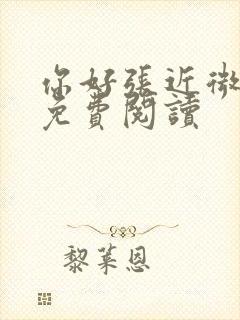 你好張近微
免費閱讀
黎萊恩